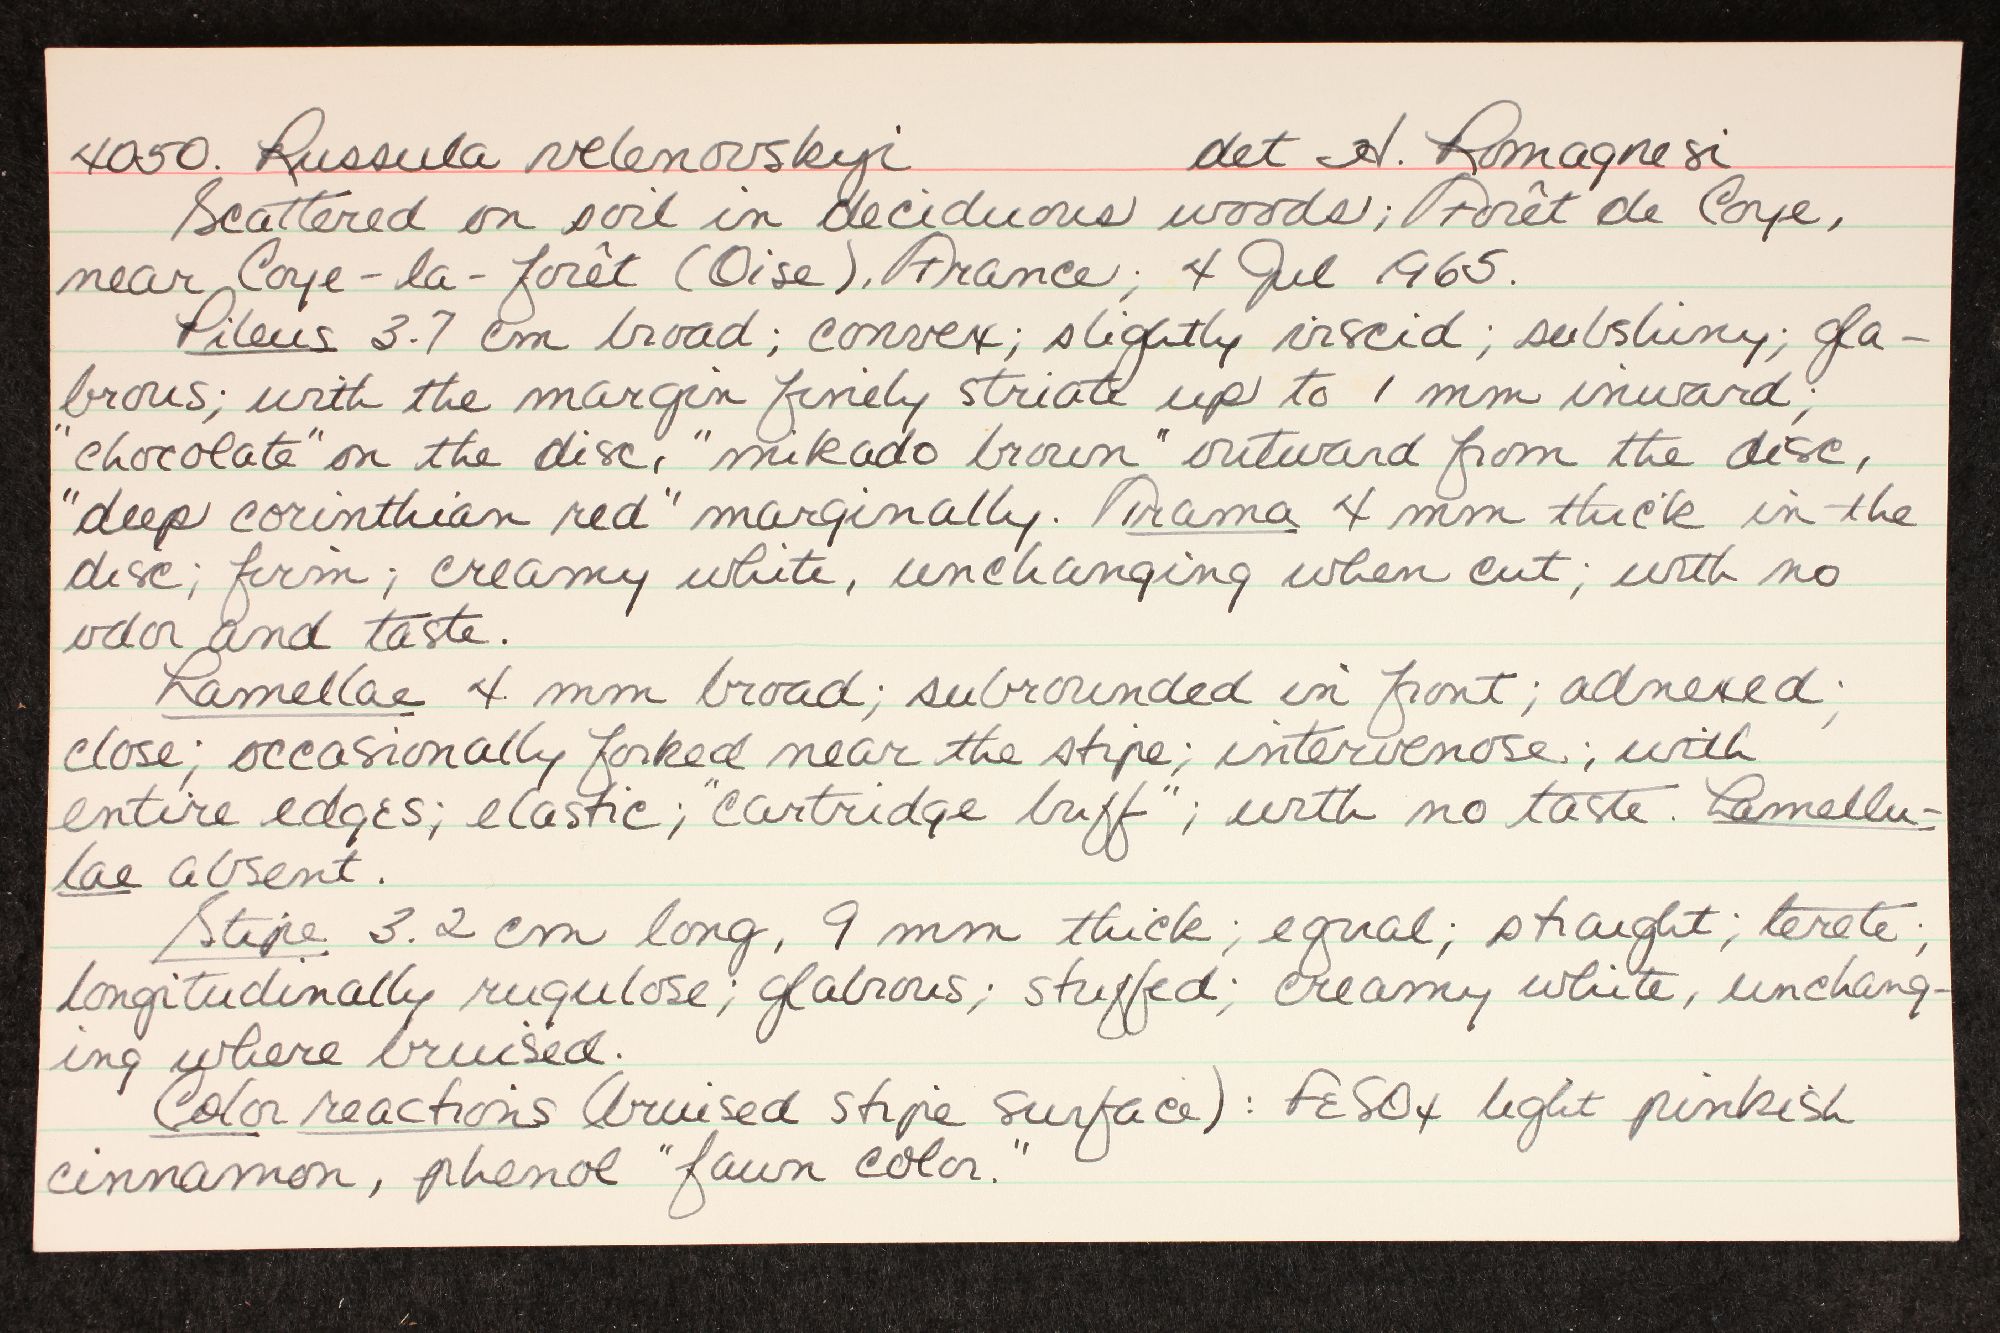 4050. Russula velenovskyi det H. Romagnesi
Scattered on soil in deciduous woods; Forêt de Coye,
near Coye-la-forêt (Oise), France; 4 Jul 1965.
Pileus 3.7 cm broad; convex; slightly viscid; subshiny; gla-
brous; with the margin finely striate up to 1 mm inward;
"chocolate" on the disc, "mikado brown" outward from the disc,
"deep corinthian red" marginally. Trama 4 mm thick in the
disc; firm; creamy white, unchanging when cut; with no
odor and taste.
Lamellae 4 mm broad; subrounded in front; adnexed;
close; occasionally forked near the stipe; intervenose; with
entire edges; elastic; "cartridge buff"; with no taste. Lamellu-
lae absent.
Stipe 3.2 cm long, 9 mm thick; equal; straight; terete;
longitudinally rugulose; glabrous; stuffed; creamy white, unchang-
ing where bruised.
Color reactions (bruised stipe surface): FeSO4 light pinkish
cinnamon, phenol "fawn color."